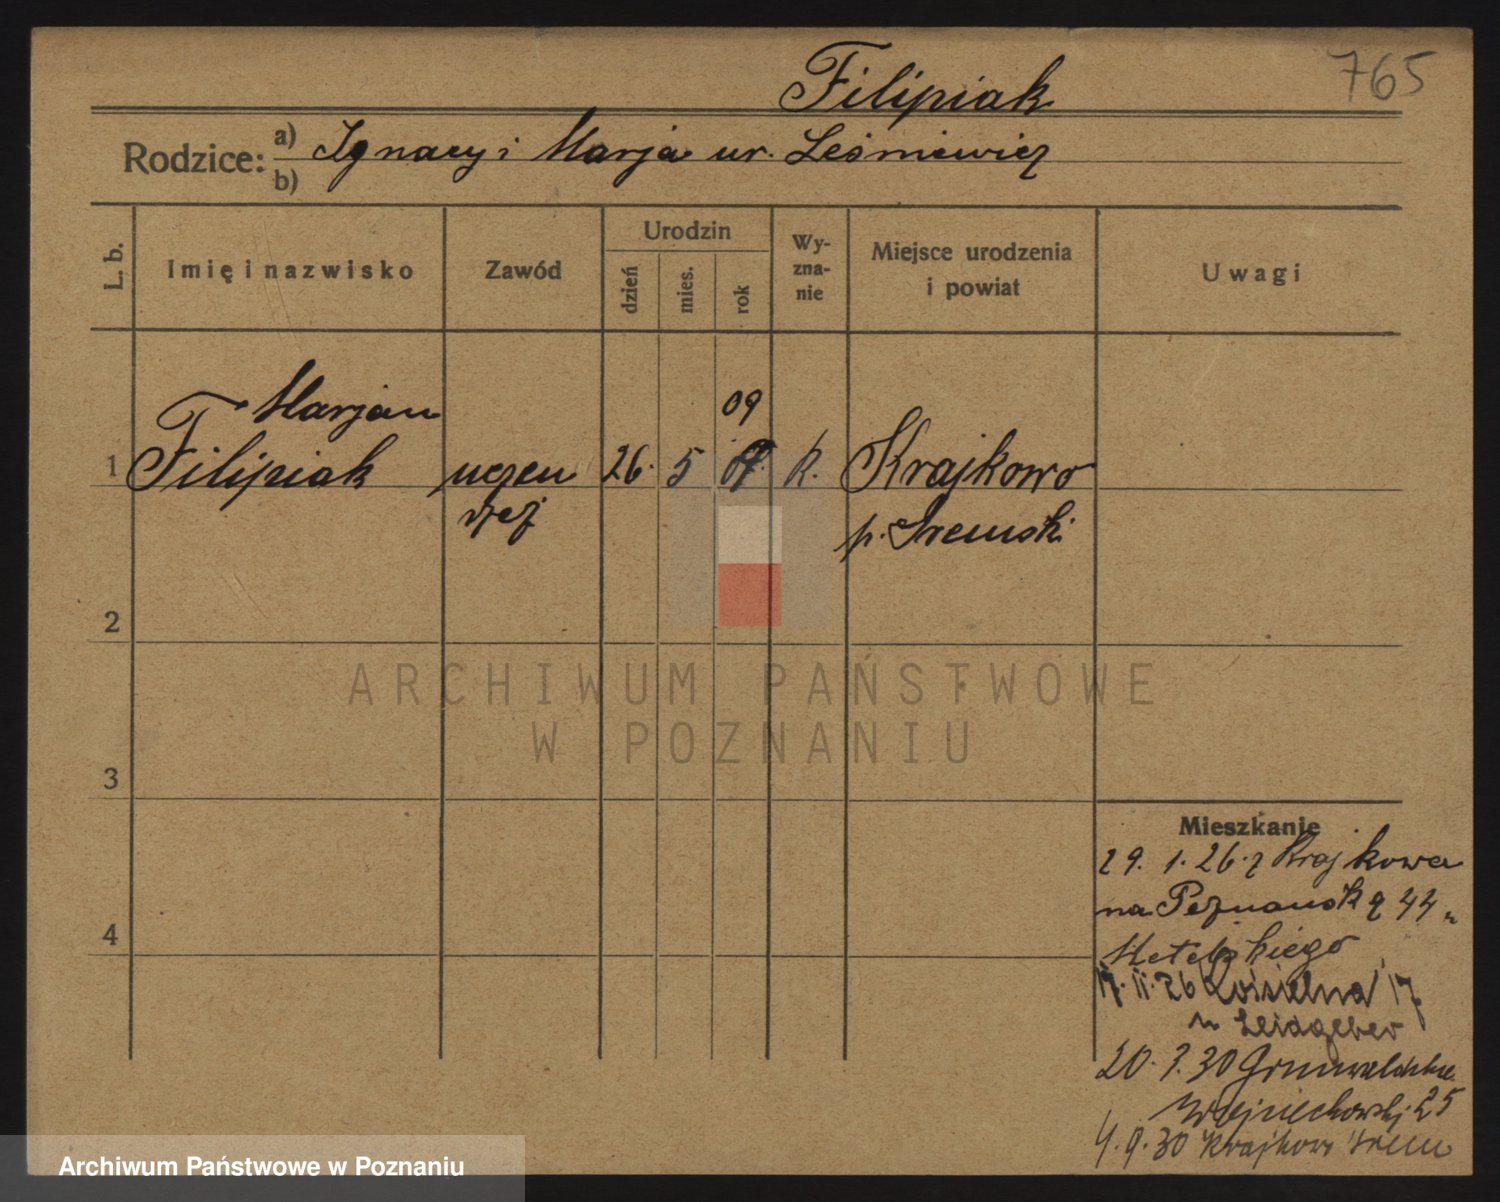 Filipiak 765
Rodzice: a) Ignacy i Marja ur. Leśniewicz
b)
L. b. Imię i nazwisko Zawód Urodzin dzień mies. rok Wy-zna-nie Miejsce urodzenia i powiat Uwagi
Marjan 09
1 Filipiak uczeń 26. 5 07. k. Krajkowo
rzeź p. Śremski
2
ARCHIWUM PAŃSTWOWE
W POZNANIU
3
Mieszkanie
29. 1. 26. z Krajkowa
na Poznańską 44
4
17. 11. 26 Kościelna 17
u Leidgeber
20. 3. 30 Grunwaldzka
Wojciechowski 25
4. 9. 30 Krajkowo Śrem
Archiwum Państwowe w Poznaniu